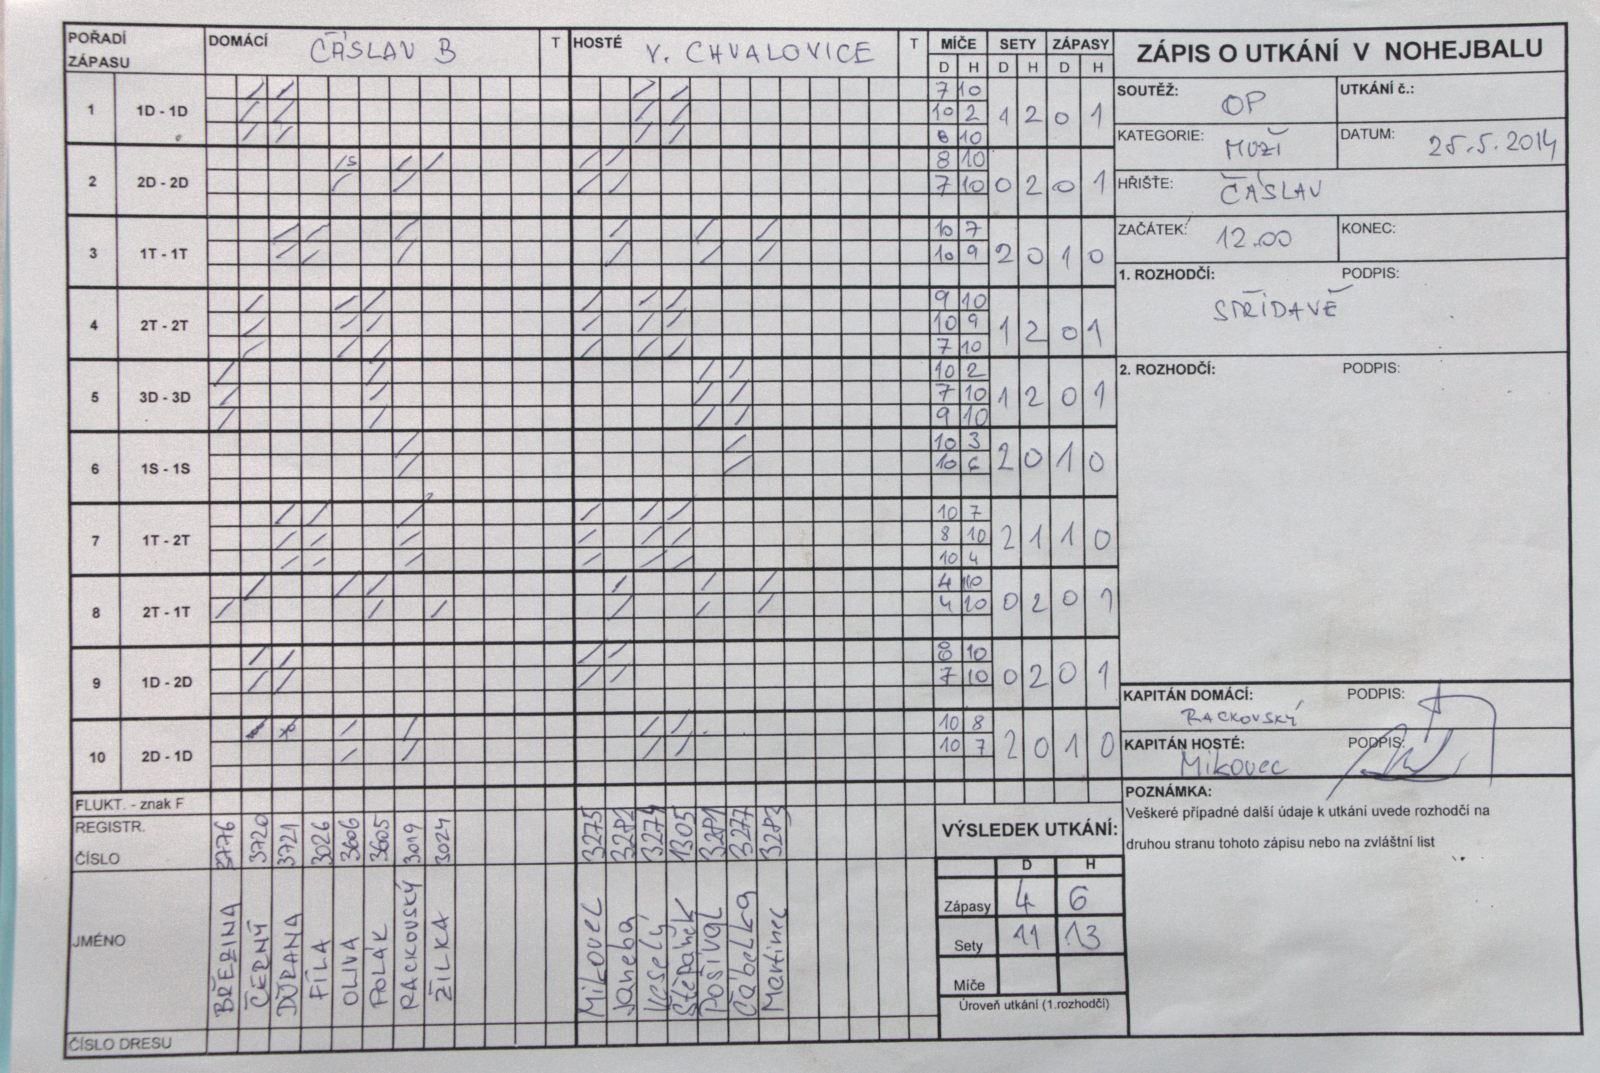 POŘADÍ ZÁPASU DOMÁCÍ ČÁSLAV B T HOSTÉ V. CHVALOVICE T MÍČE SETY ZÁPASY
D H D H D H
1 1D - 1D 7 10 1 2 0 1
10 2
8 10
2 2D - 2D 8 10 0 2 0 1
7 10
3 1T - 1T 10 7 2 0 1 0
10 9
4 2T - 2T 9 10 1 2 0 1
10 9
7 10
5 3D - 3D 10 2 1 2 0 1
7 10
9 10
6 1S - 1S 10 3 2 0 1 0
10 6
7 1T - 2T 10 7 2 1 1 0
8 10
10 4
8 2T - 1T 4 10 0 2 0 1
4 10
9 1D - 2D 8 10 0 2 0 1
7 10
10 2D - 1D 10 8 2 0 1 0
10 7
FLUKT. - znak F
REGISTR. ČÍSLO 3776 3720 3721 3026 3606 3605 3019 3024 3275 3282 3274 1305 3281 3277 3283
JMÉNO BŘEZINA ČERNÝ ĎURANA FÍLA OLIVA POLÁK RACKOVSKÝ ŽILKA Mikovec Janeba Veselý Štěpánek Pošíval Čábelka Martinec
ČÍSLO DRESU
VÝSLEDEK UTKÁNÍ:
D H
Zápasy 4 6
Sety 11 13
Míče
Úroveň utkání (1.rozhodčí)
ZÁPIS O UTKÁNÍ V NOHEJBALU
SOUTĚŽ: OP UTKÁNÍ č.:
KATEGORIE: MUŽI DATUM: 25.5.2014
HŘIŠTE: ČÁSLAV
ZAČÁTEK: 12.00 KONEC:
1. ROZHODČÍ: PODPIS:
STŘÍDAVĚ
2. ROZHODČÍ: PODPIS:
KAPITÁN DOMÁCÍ: PODPIS:
RACKOVSKÝ
KAPITÁN HOSTÉ: PODPIS:
Mikovec
POZNÁMKA:
Veškeré případné další údaje k utkání uvede rozhodčí na
druhou stranu tohoto zápisu nebo na zvláštní list